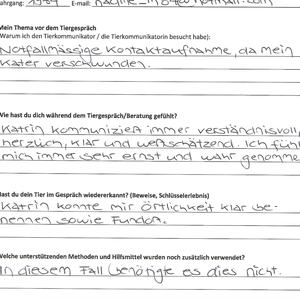 ahrgang: 1984 E-mail:
Mein Thema vor dem Tiergespräch
Warum ich den Tierkommunikator / die Tierkommunikatorin besucht habe):
Notfallmässige Kontaktaufnahme, da mein
Kater verschwunden.
Wie hast du dich während dem Tiergespräch/Beratung gefühlt?
Katrin kommuniziert immer verständnisvoll,
herzlich, klar und wertschätzend. Ich fühl
mich immer sehr ernst und wahr genomme
Hast du dein Tier im Gespräch wiedererkannt? (Beweise, Schlüsselerlebnis)
Katrin konnte mir Örtlichkeit klar be-
nennen sowie Fundort.
Welche unterstützenden Methoden und Hilfsmittel wurden noch zusätzlich verwendet?
In diesem Fall benötigte es dies nicht.